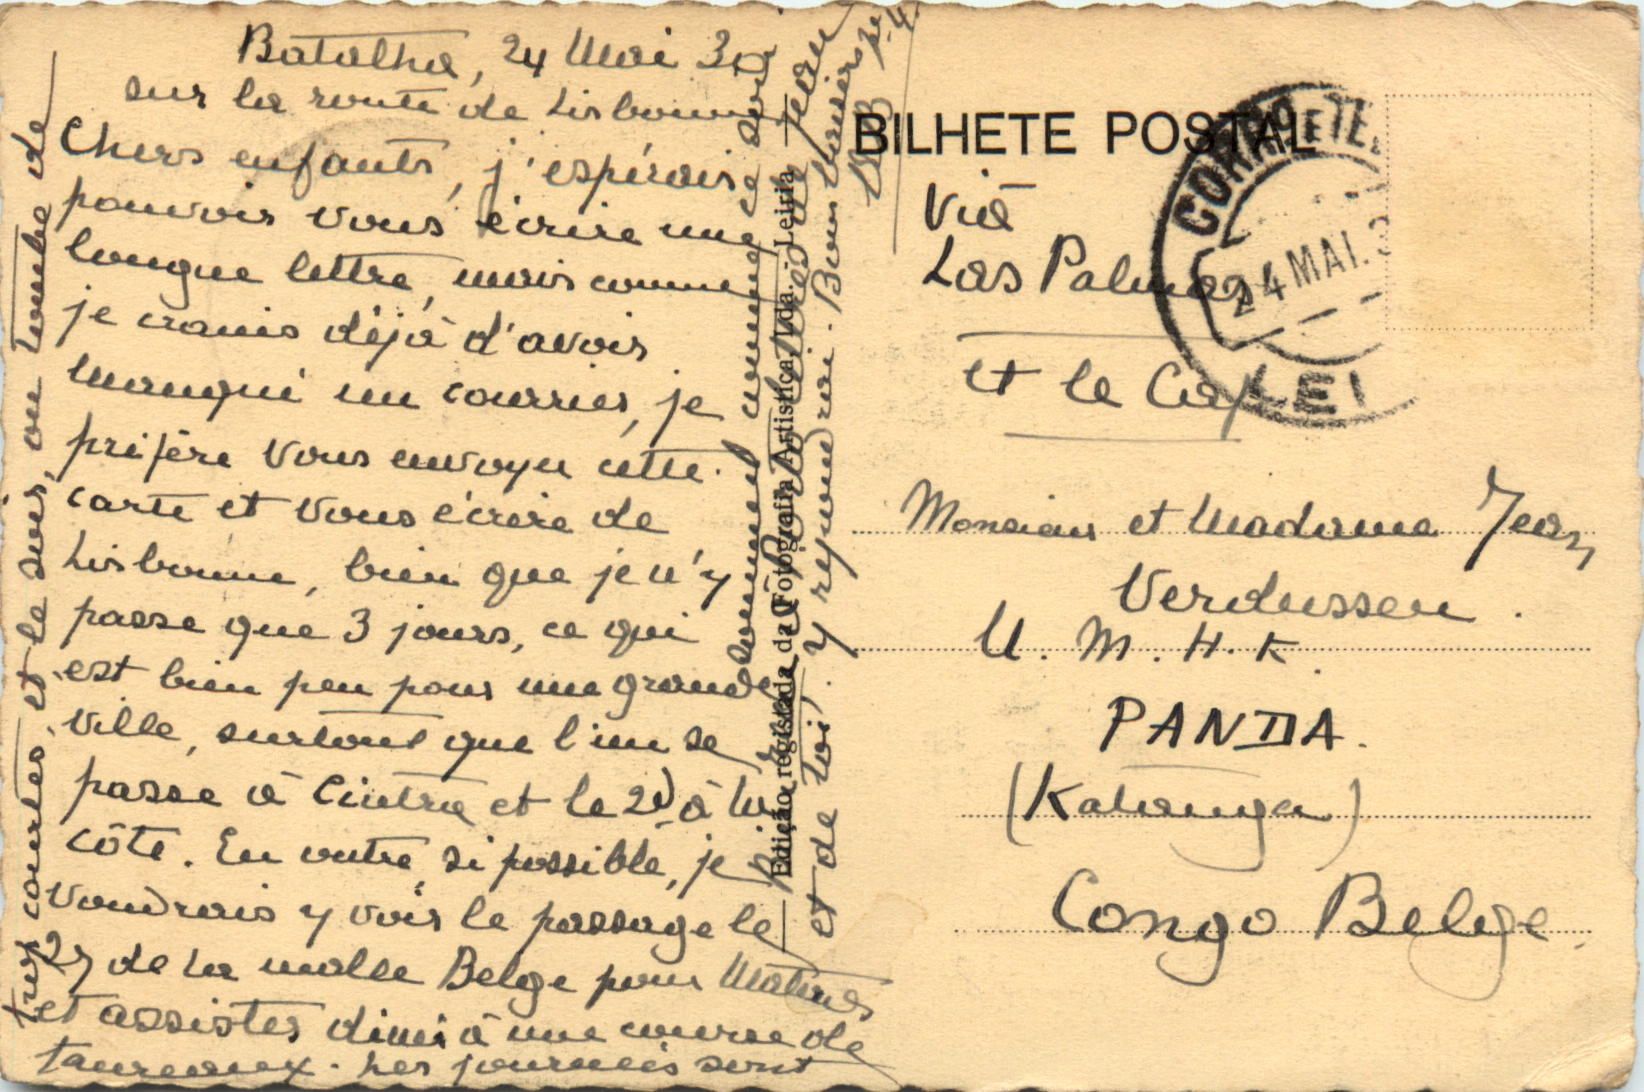 Batalha, 24 Mai 30
sur la route de Lisbonne
Chers enfants, j'espérais
pouvoir vous écrire une
longue lettre, mais comme
je crains déjà d'avoir
manqué un courrier, je
préfère vous envoyer cette
carte et vous écrire de
Lisbonne, bien que je n'y
passe que 3 jours, ce qui
est bien peu pour une grande
ville, surtout que l'un se
passe à Cintra et le 2d à la
côte. En outre, si possible, je
voudrais y voir le passage le
27 de la malle Belge pour Matadi
et assister dimi à une course de
taureaux. Les journées sont
trop courtes, et le soir, on tombe de
sommeil comme ce soir
lettres de Jean
et de toi. y répondrai. Bons baisers
BILHETE POSTAL
Viâ
Las Palmas
et le Cap
Monsieur et Madame Jean
Verdussen.
U. M. H. K.
PANDA.
(Katanga)
Congo Belge.
Edição registada da Fotografia Artistica, Lda. - Leiria
CORREIO
24 MAI. 3
LEI